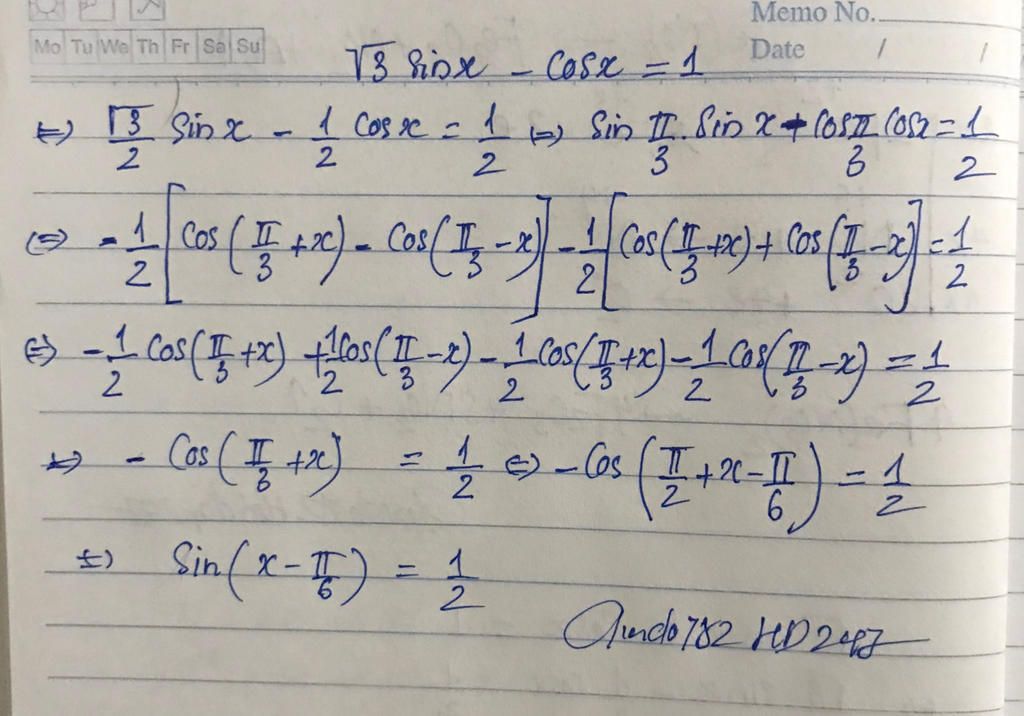 Memo No.
Mo Tu We Th Fr Sa Su
Date / /
√3 Sinx - Cosx = 1
⇔ √3/2 Sin x - 1/2 Cos x = 1/2 ⇔ Sin π/3 . Sin x - Cos π/3 Cosx = 1/2
⇔ -1/2 [Cos(π/3 + x) - Cos(π/3 - x)] - 1/2 [Cos(π/3 + x) + Cos(π/3 - x)] = 1/2
⇔ -1/2 Cos(π/3 + x) + 1/2 Cos(π/3 - x) - 1/2 Cos(π/3 + x) - 1/2 Cos(π/3 - x) = 1/2
⇔ - Cos(π/3 + x) = 1/2 ⇔ - Cos(π/2 + x - π/6) = 1/2
⇔ Sin(x - π/6) = 1/2